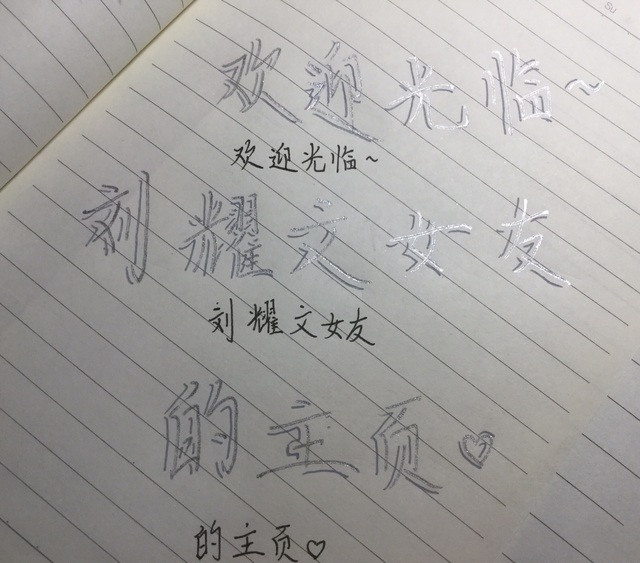 欢迎光临~
欢迎光临~
刘耀文女友
刘耀文女友
的主页♡
的主页♡